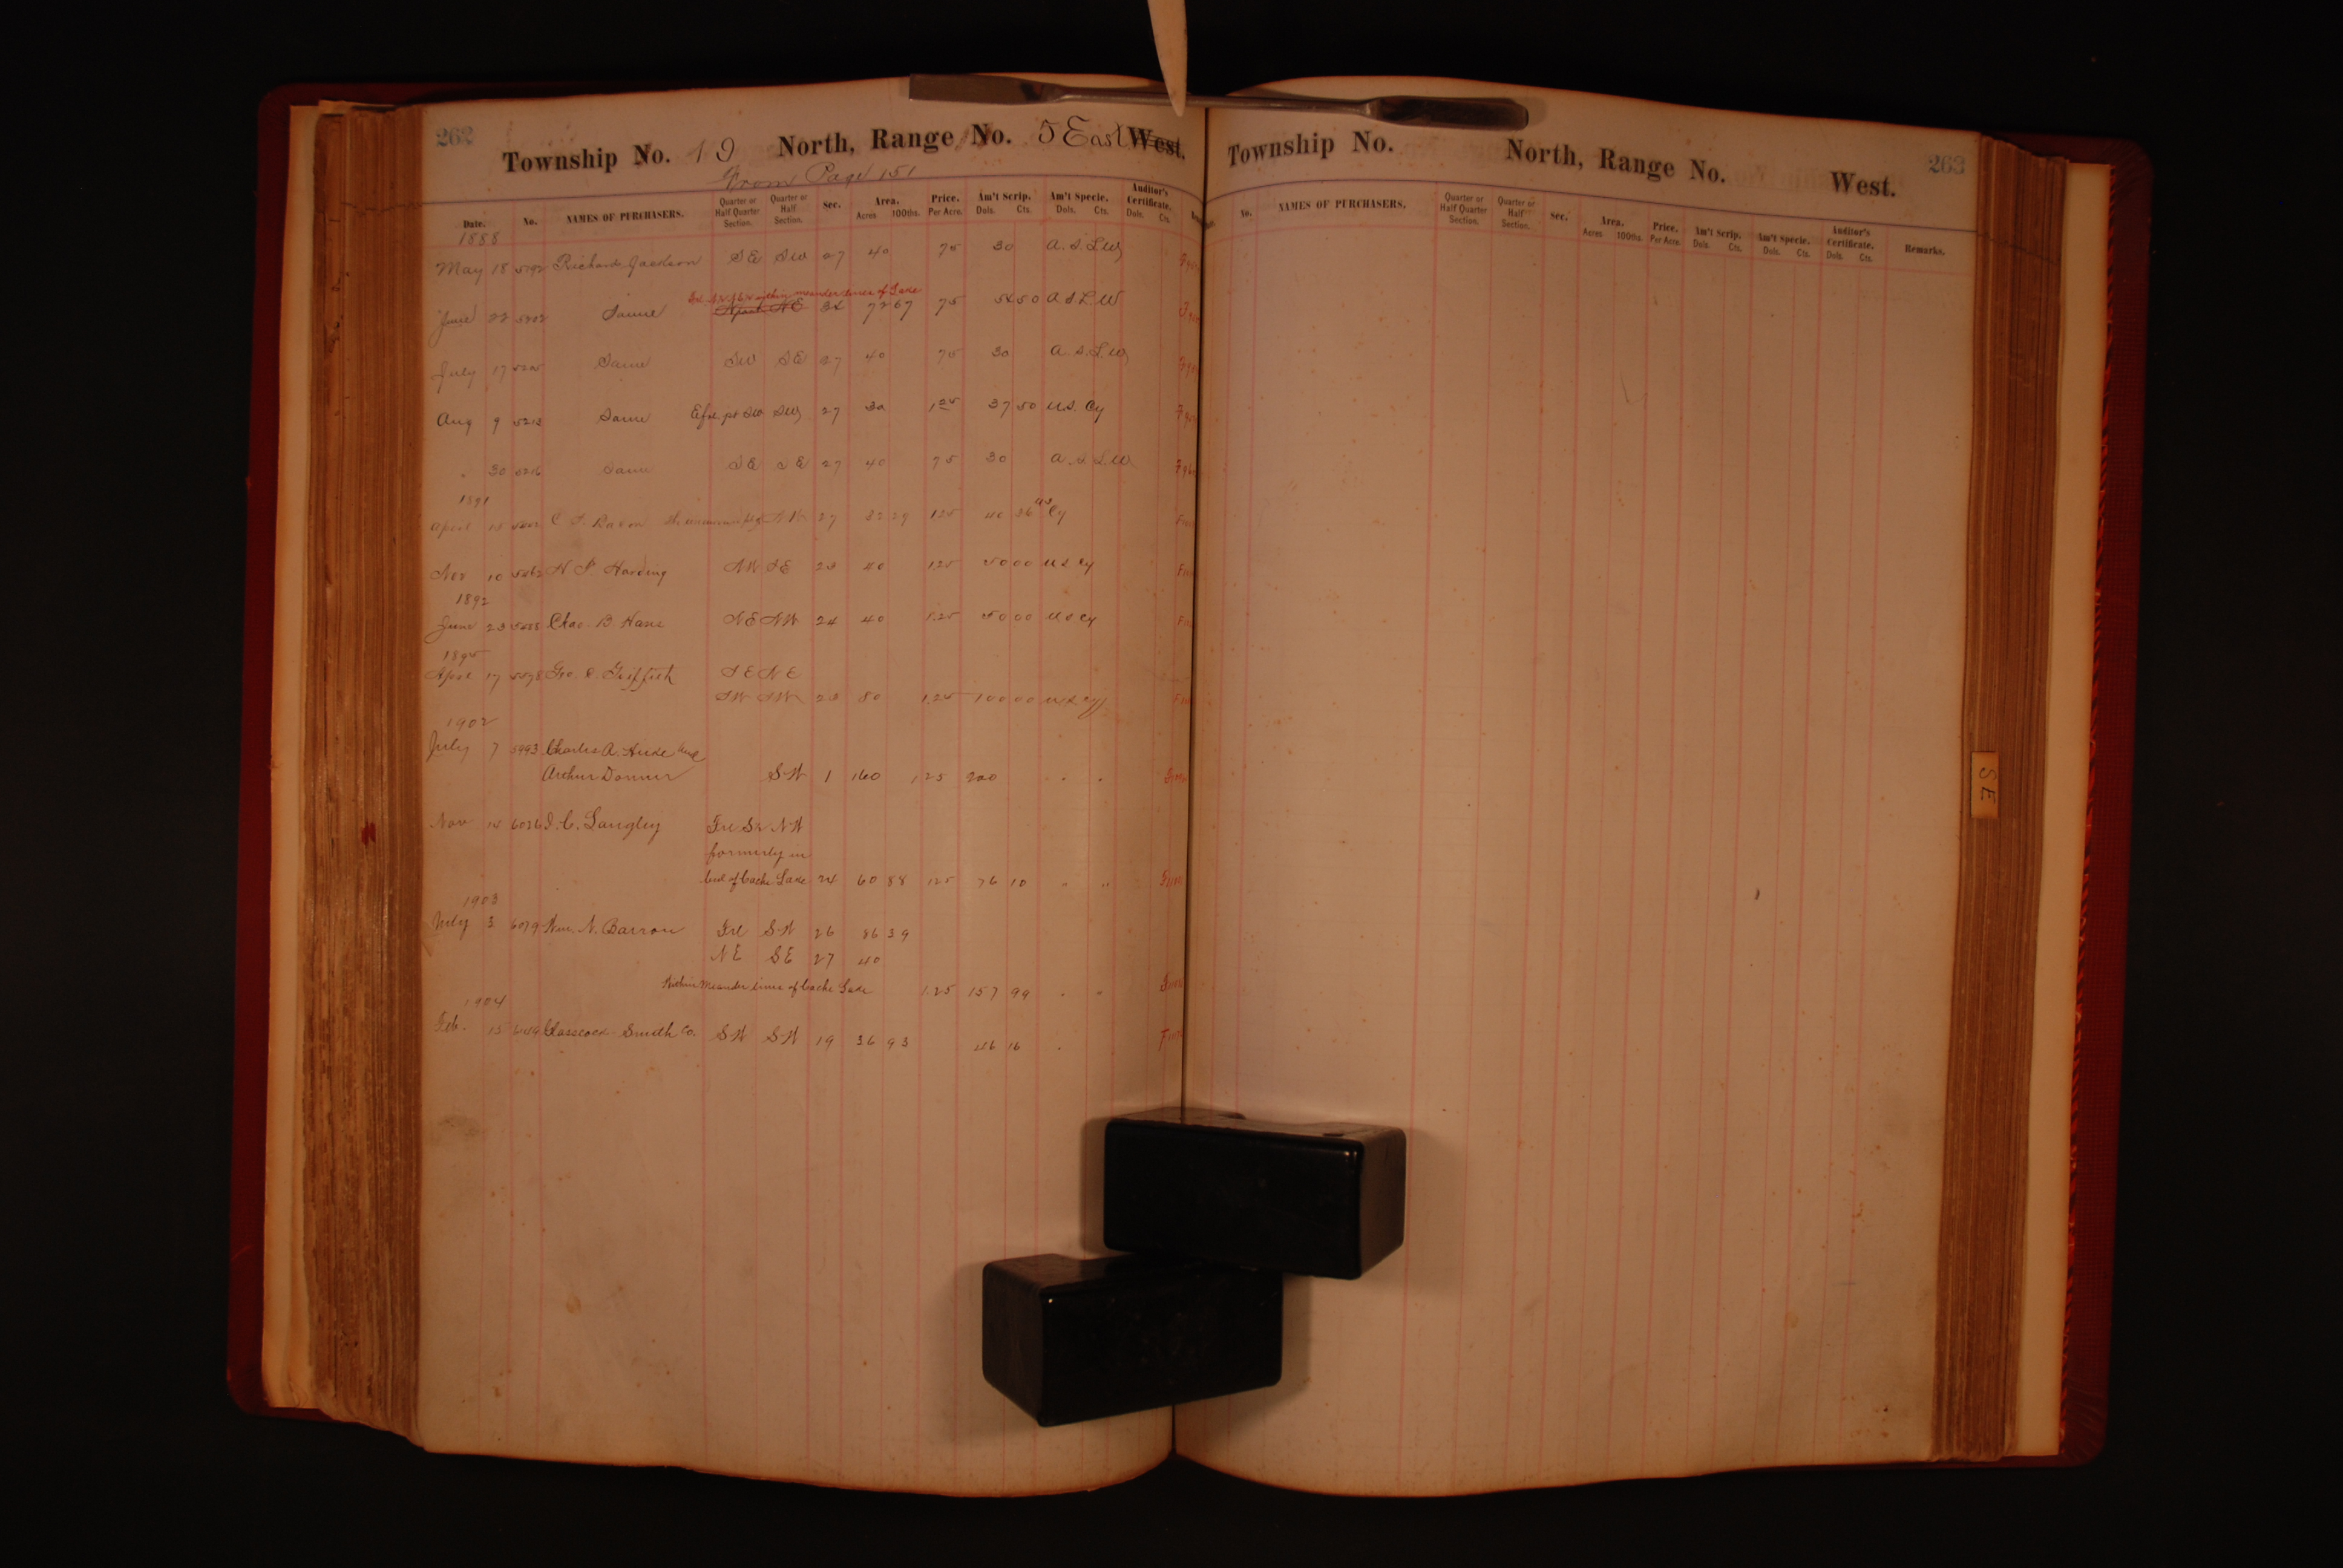 262
Township No. 19 North, Range No. 5 East West.
From Page 151
Date. No. NAMES OF PURCHASERS. Quarter or Half Quarter Section. Quarter or Half Section. Sec. Area. Acres 100ths. Price. Per Acre. Am't Scrip. Dols. Cts. Am't Specie. Dols. Cts. Auditor's Certificate. Dols. Cts.
1888
May 18 5192 Richard Jackson SE SW 27 40 75 30 A. S. L W
within meander lines of Lake
June 22 5202 Same NE 34 72 67 75 54 50 A S L W
July 17 5205 Same SW SE 27 40 75 30 A. S. L W
Aug 9 5212 Same SW SW 27 30 1 25 37 50 U.S. Cy
" 30 5216 Same SE SE 27 40 75 30 A. S. L. W
1891
April NW 27 32 29 1 25 40 36 US Cy
Nov 10 Harding NW SE 23 40 1 25 50 00 U S Cy
1892
June 23 Chas. B. NE NW 24 40 1.25 50 00 U S Cy
1895
April 17 5598 Geo. Griffith SE NE
SW SW 23 80 1.25 100 00 U S Cy
1902
July 7 5993 Charles A. and
Arthur SW 1 160 1 25 200 " "
Nov 6036 Langley Frl NW
formerly in
bed of Cache Lake 24 60 88 1 25 76 10 " "
1903
July 3 6079 Wm. N. Barron Frl SW 26 86 39
NE SE 27 40
Within Meander lines of Cache Lake 1.25 157 99 " "
1904
Feb. 15 Glasscock Smith Co. SW SW 19 36 93 46 16 "
263
Township No. North, Range No. West.
No. NAMES OF PURCHASERS. Quarter or Half Quarter Section. Quarter or Half Section. Sec. Area. Acres 100ths. Price. Per Acre. Am't Scrip. Dols. Cts. Am't Specie. Dols. Cts. Auditor's Certificate. Dols. Cts. Remarks.
SE